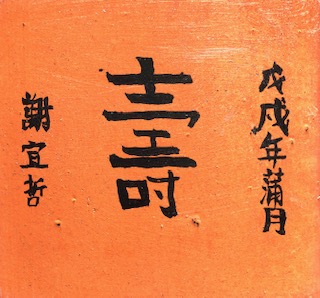 戊戌年蒲月
壽
謝宜哲